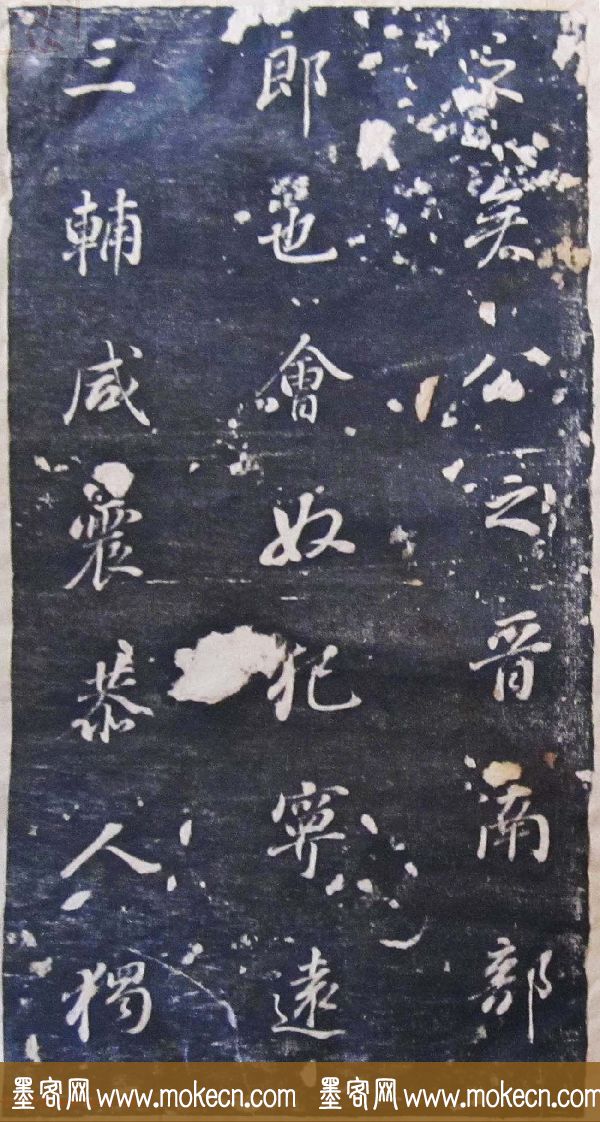 矣公之晋部
郎也會奴犯寧遠
三輔咸震恭人獨
墨客网 www.mokecn.com 墨客网 www.mokecn.com